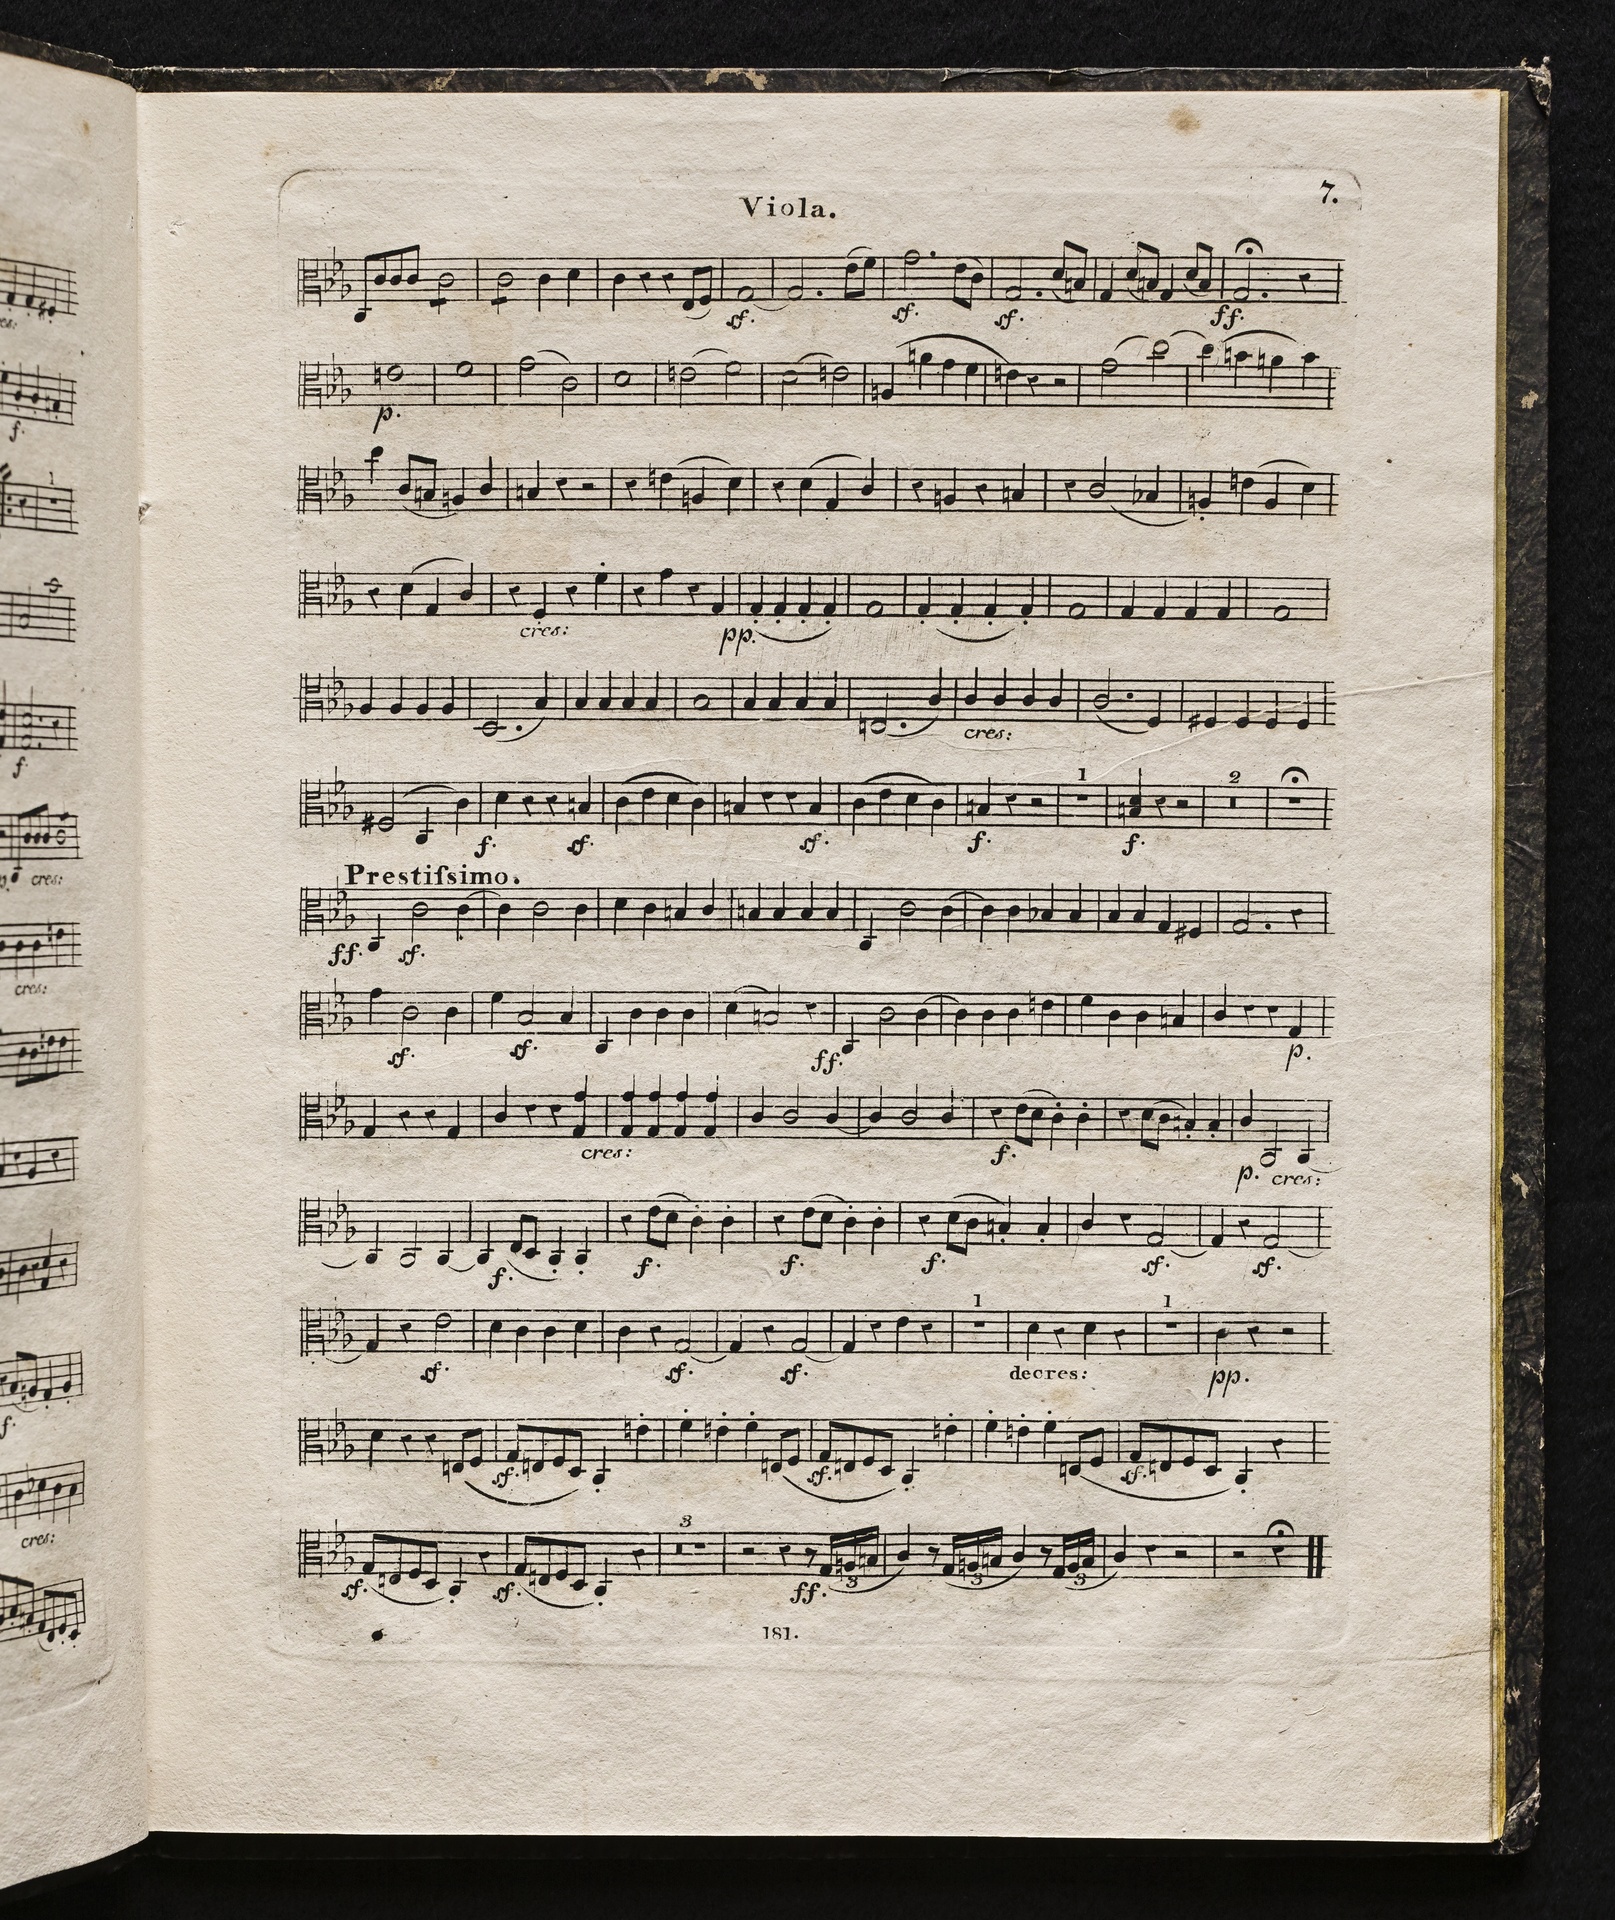 Viola.
7.
sf. sf. sf. ff.
p.
cres: pp.
cres:
1 2
f. sf. sf. f. f.
Prestiſsimo.
ff. sf.
sf. sf. ff. p.
cres: f. p. cres:
f. f. f. f. sf. sf.
1 1
sf. sf. sf. decres: pp.
sf. sf. sf.
3
sf. sf. ff. 3 3 3
181.